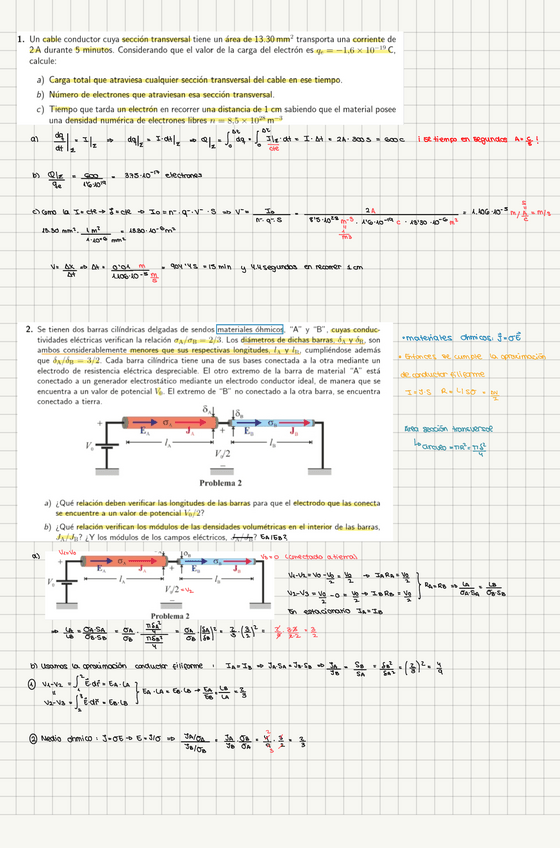 1. Un cable conductor cuya sección transversal tiene un área de 13.30 mm² transporta una corriente de
2 A durante 5 minutos. Considerando que el valor de la carga del electrón es qₑ = −1,6 × 10⁻¹⁹ C,
calcule:
a) Carga total que atraviesa cualquier sección transversal del cable en ese tiempo.
b) Número de electrones que atraviesan esa sección transversal.
c) Tiempo que tarda un electrón en recorrer una distancia de 1 cm sabiendo que el material posee
una densidad numérica de electrones libres n = 8.5 × 10²⁸ m⁻³
a) dq/dt |Σ = I|Σ ⇒ dq|Σ = I·dt|Σ ⇒ Q|Σ = ∫₀^Δt dq = ∫₀^Δt I|Σ·dt = I·Δt = 2A·300s = 600c ¡ se tiempo en segundos A = C/s !
cte
b) Q|Σ/qe = 600/1'6·10⁻¹⁹ = 3'75·10⁻¹⁹ electrones
c) como la I = cte → J = cte ⇒ I₀ = n⁻·q⁻·V⁻·S ⇒ V⁻ = I₀/n⁻·q⁻·S = 2A/8'5·10²⁸ m⁻³·1'6·10⁻¹⁹ c·13'30·10⁻⁶ m² = 1.106·10⁻⁵ m/s
13.30 mm² · 1 m²/1·10⁶ mm² = 13.30·10⁻⁶ m²
V = Δx/Δt ⇒ Δt = 0'01 m/1.106·10⁻⁵ m/s = 904'4s = 15 min y 4.4 segundos en recorrer 1 cm
2. Se tienen dos barras cilíndricas delgadas de sendos materiales óhmicos, "A" y "B", cuyas conduc-
tividades eléctricas verifican la relación σA/σB = 2/3. Los diámetros de dichas barras, δA y δB, son
ambos considerablemente menores que sus respectivas longitudes, lA y lB, cumpliéndose además
que δA/δB = 3/2. Cada barra cilíndrica tiene una de sus bases conectada a la otra mediante un
electrodo de resistencia eléctrica despreciable. El otro extremo de la barra de material "A" está
conectado a un generador electrostático mediante un electrodo conductor ideal, de manera que se
encuentra a un valor de potencial V₀. El extremo de "B" no conectado a la otra barra, se encuentra
conectado a tierra.
•materiales óhmicos: J=σE
• Entonces se cumple la aproximación
de conductor filiforme
I = J·S R = L/Sσ = ΔV/I
Área sección transversal
↳ círculo = πR² = πδ²/4
δA δB
+ σA σB
EA JA + EB JB
V₀ lA lB
− V₀/2
−
Problema 2
a) ¿Qué relación deben verificar las longitudes de las barras para que el electrodo que las conecta
se encuentre a un valor de potencial V₀/2?
b) ¿Qué relación verifican los módulos de las densidades volumétricas en el interior de las barras,
JA/JB? ¿Y los módulos de los campos eléctricos, JA/JB? EA/EB?
a) V₁=V₀ V₃=0 (conectado a tierra)
σA σB
EA JA EB JB
V₀ lA lB
V₀/2 = V₂
Problema 2
V₁-V₂ = V₀ - V₀/2 = V₀/2 → IA RA = V₀/2
V₂-V₃ = V₀/2 - 0 = V₀/2 → IB RB = V₀/2
RA = RB ⇒ LA/σA·SA = LB/σB·SB
En estacionario IA = IB
⇒ LA/LB = σA·SA/σB·SB = σA/σB · (πδA²/4)/(πδB²/4) = σA/σB · (δA/δB)² = 2/3 · (3/2)² = 3/2
b) Usamos la aproximación conductor filiforme : IA = IB ⇒ JA·SA = JB·SB ⇒ JA/JB = SB/SA = δB²/δA² = (2/3)² = 4/9
① V₁-V₂ = ∫₁² E·dr = EA·LA
V₂-V₃ = ∫₂³ E·dr = EB·LB
EA·LA = EB·LB ⇒ EA/EB = LB/LA = 2/3
② Medio óhmico : J = σE ⇒ E = J/σ ⇒ (JA/σA)/(JB/σB) = JA/JB · σB/σA = 4/9 · 3/2 = 2/3